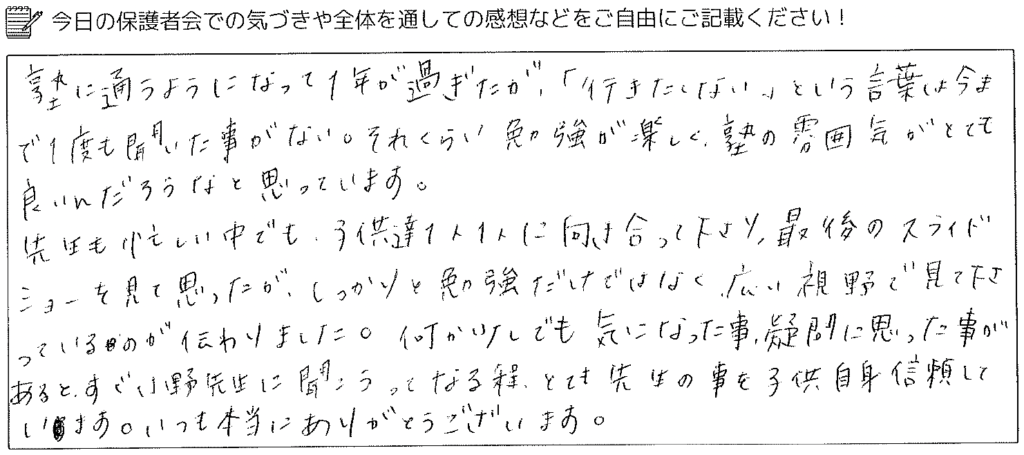 今日の保護者会での気づきや全体を通しての感想などをご自由にご記載ください！
塾に通うようになって1年が過ぎたが、「行きたくない。」という言葉は今ま
で1度も聞いた事がない。それくらい勉強が楽しく、塾の雰囲気がとても
良いんだろうなと思っています。
先生も忙しい中でも、子供達1人1人に向き合って下さり、最後のスライド
ショーを見て思ったが、しっかりと勉強だけではなく、広い視野で見て下さ
っているのが伝わりました。何か少しでも気になった事、疑問に思った事が
あると、すぐ小野先生に聞こうってなる程、とても先生の事を子供自身信頼して
います。いつも本当にありがとうございます。